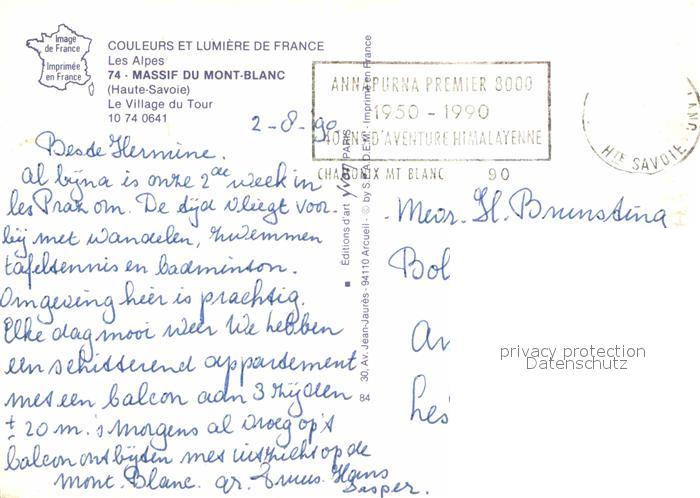 Image
de France
Imprimée
en France
COULEURS ET LUMIÈRE DE FRANCE
Les Alpes
74 - MASSIF DU MONT-BLANC
(Haute-Savoie)
Le Village du Tour
10 74 0641
ANNAPURNA PREMIER 8000
1950 - 1990
40 ANS D'AVENTURE HIMALAYENNE
CHAMONIX MT BLANC 90
HTE SAVOIE
2-8-90
Beste Hermine.
Al bijna is onze 2de week in
les Praz om. De tijd vliegt voor-
bij met wandelen, zwemmen
tafeltennis en badminton.
Omgeving hier is prachtig.
Elke dag mooi weer We hebben
een schitterend appartement
met een balcon aan 3 zijden
± 20 m. 's morgens al vroeg op 't
balcon ontbijten met uitzicht op de
Mont. Blanc. gr. Truus. Hans
Jasper.
Editions d'art YVON PARIS
30, Av. Jean-Jaurès - 94110 Arcueil - © by S.P.A.D.E.M. - Imprimé en France
84
Mevr. H. Brunstina
Bol
privacy protection
Datenschutz